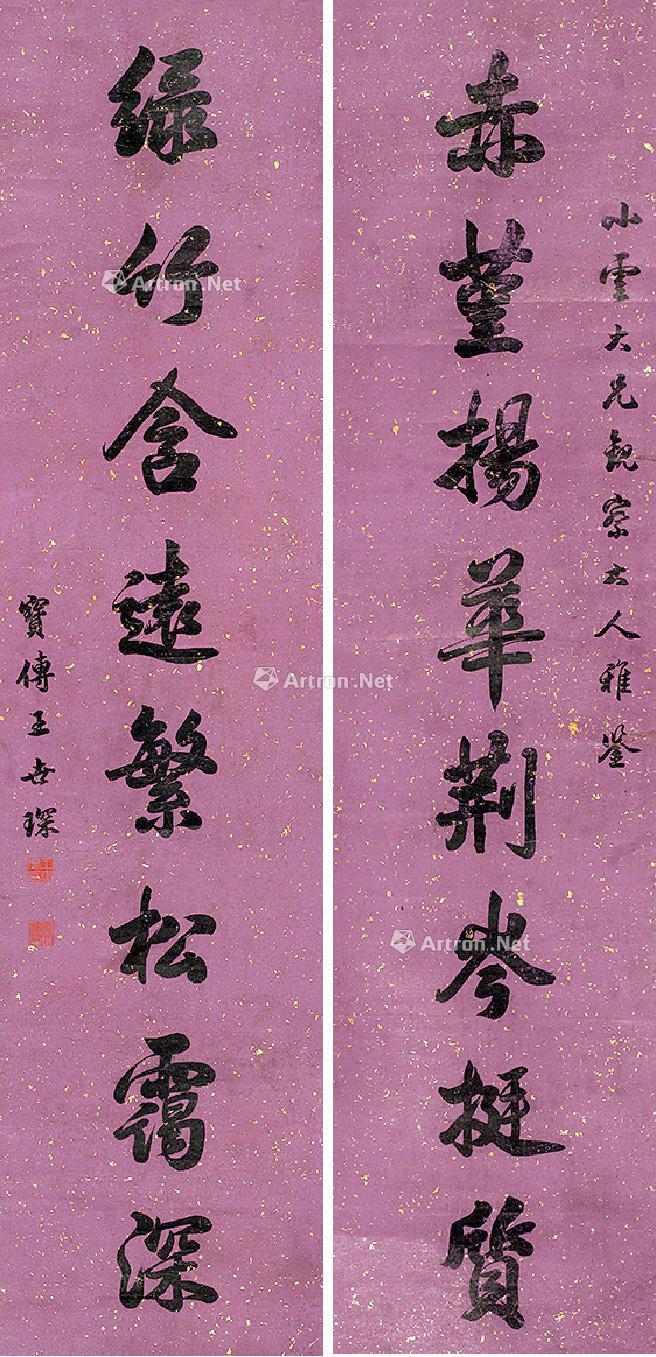 小雲大兄観察大人雅鑒
赤堇揚華荆岑挺質
緑竹含遠繁松靄深
寶傳王世琛
Artron.Net
Artron.Net
Artron.Net
Artron.Net